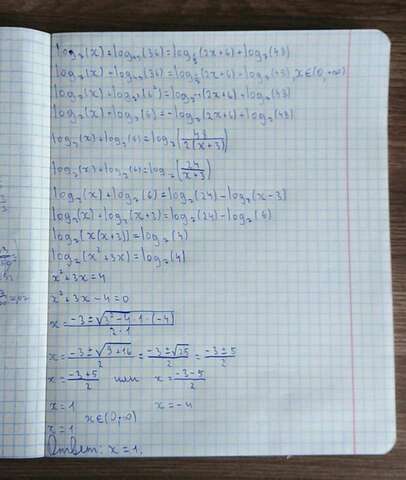 log₂(x)+log₄(36)=log_½(2x+6)+log₂(48)
log₂(x)+log₄(36)=log_½(2x+6)+log₂(48), x∈(0,+∞)
log₂(x)+log₂²(6²)=log₂₋₁(2x+6)+log₂(48)
log₂(x)+log₂(6)=-log₂(2x+6)+log₂(48)
log₂(x)+log₂(6)=log₂(48/2(x+3))
log₂(x)+log₂(6)=log₂(24/x+3)
log₂(x)+log₂(6)=log₂(24)-log₂(x-3)
log₂(x)+log₂(x+3)=log₂(24)-log₂(6)
log₂(x(x+3))=log₂(4)
log₂(x²+3x)=log₂(4)
x²+3x=4
x²+3x-4=0
x=-3±√3²-4·1·(-4)/2·1
x=-3±√9+16/2=-3±√25/2=-3±5/2
x=-3+5/2 или x=-3-5/2
x=1 x=-4
x∈(0,+∞)
x=1
Ответ: x=1;